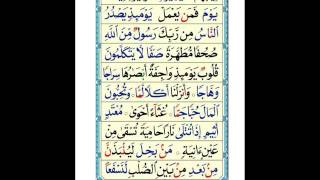 يَوْمَ فَمَنْ يَعْمَلْ يَوْمَئِذٍ يَصْدُرُ
النَّاسُ مِنْ رَبِّكَ رَسُولٌ مِنَ اللَّهِ
صُحُفًا مُطَهَّرَةً صَفًّا لَا يَتَكَلَّمُونَ
قُلُوبٌ يَوْمَئِذٍ وَاجِفَةٌ أَبْصَرُهَا سِرَاجًا
وَهَّاجًا وَأَنْزَلْنَا أَكْلًا لَمًّا وَتُحِبُّونَ
الْمَالَ حُبًّا جَمًّا غُثَاءً أَحْوَى مُعْتَدٍ
أَثِيمٍ إِذَا تُتْلَى نَارًا حَامِيَةً تُسْقَى مِنْ
عَيْنٍ ءَانِيَةٍ مَنْ بَخِلَ لَيُنْبَذَنَّ
مِنْ بَعْدِ مِنْ بَيْنِ الصُّلْبِ لَنَسْفَعًا